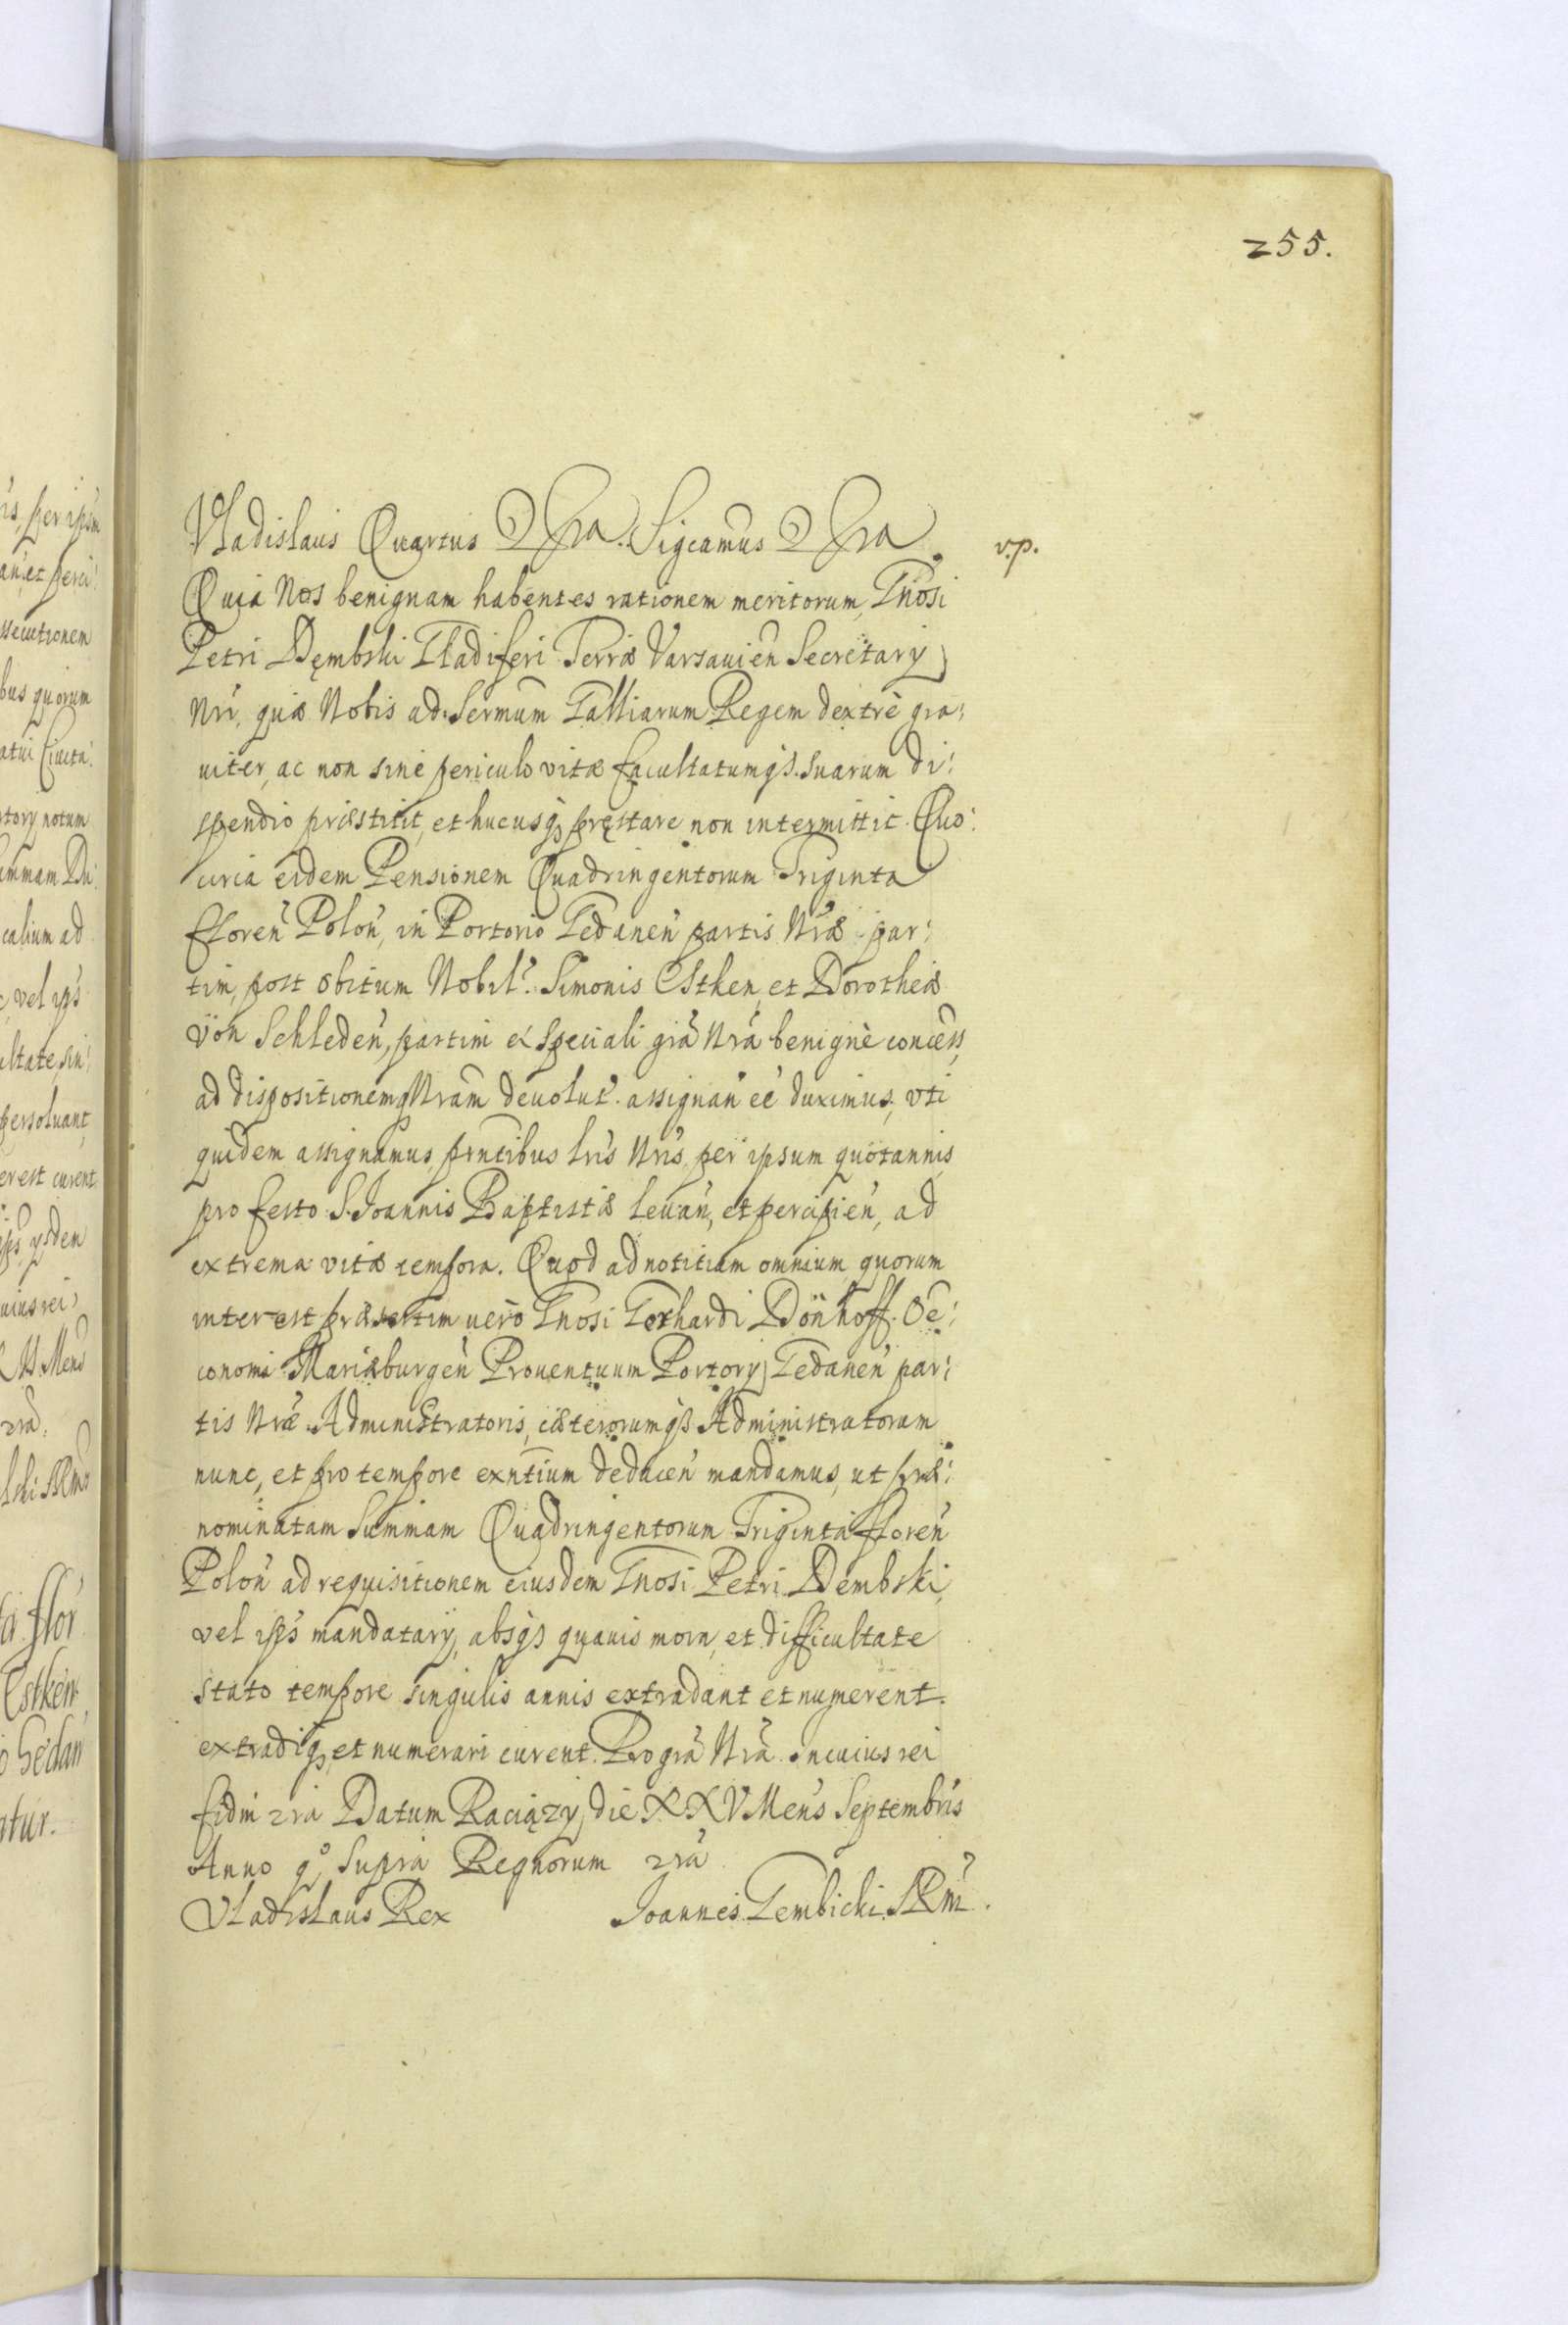 255.
Vladislaus Quartus 2ra. Sigcamus 2ra v.p.
Quia Nos benignam habentes rationem meritorum, Gnosi
Petri Dęmbski Gladiferi Terræ Varsauień Secretarij
Nri, quæ Nobis ad Sermum Galliarum Regem dextrè gra:
uiter, ac non sine periculo vitæ facultatumqs suarum di:
spendio præstitit, et hucusqs pręstare non intermittit. Quo:
circa eidem Pensionem Quadringentorum Triginta
ffloreń Poloń, in Portorio Gedaneń partis Nræ par:
tim, post obitum Nobil. Simonis Estken, et Dorotheæ
von Schledeń, partim ex speciali grã Nrã benignè concess,
ad dispositionemq Nram deuolut. assignań eé duximus, vti
quidem assignamus, pntibus lris Nris per ipsum quotannis
pro festo S. Joannis Baptistæ leuań, et percipień, ad
extrema vitæ tempora. Quod ad notitiam omnium quorum
interest præsertim uero Gnosi Gerhardi Dönhoff. Oe:
conomi Mariæburgeń Prouentuum Portorij Gedaneń par:
tis Nræ Administratoris, cæterorumqs Administratorum
nunc, et pro tempore exntium deduceń mandamus, ut præ:
nominatam Summam Quadringentorum Triginta ffloreń
Poloń ad requisitionem eiusdem Gnosi Petri Dembski,
vel ipś mandatarij, absqs quauis mora, et difficultate
stato tempore singulis annis extradant et numerent.
extradiqs, et numerari curent. Pro grã Nrã. In cuius rei
fidm 2ra Datum Raciązy, die XXV Mens Septembris
Anno qo supra Regnorum 2ra
Vladislaus Rex Joannes Gembicki SRM.